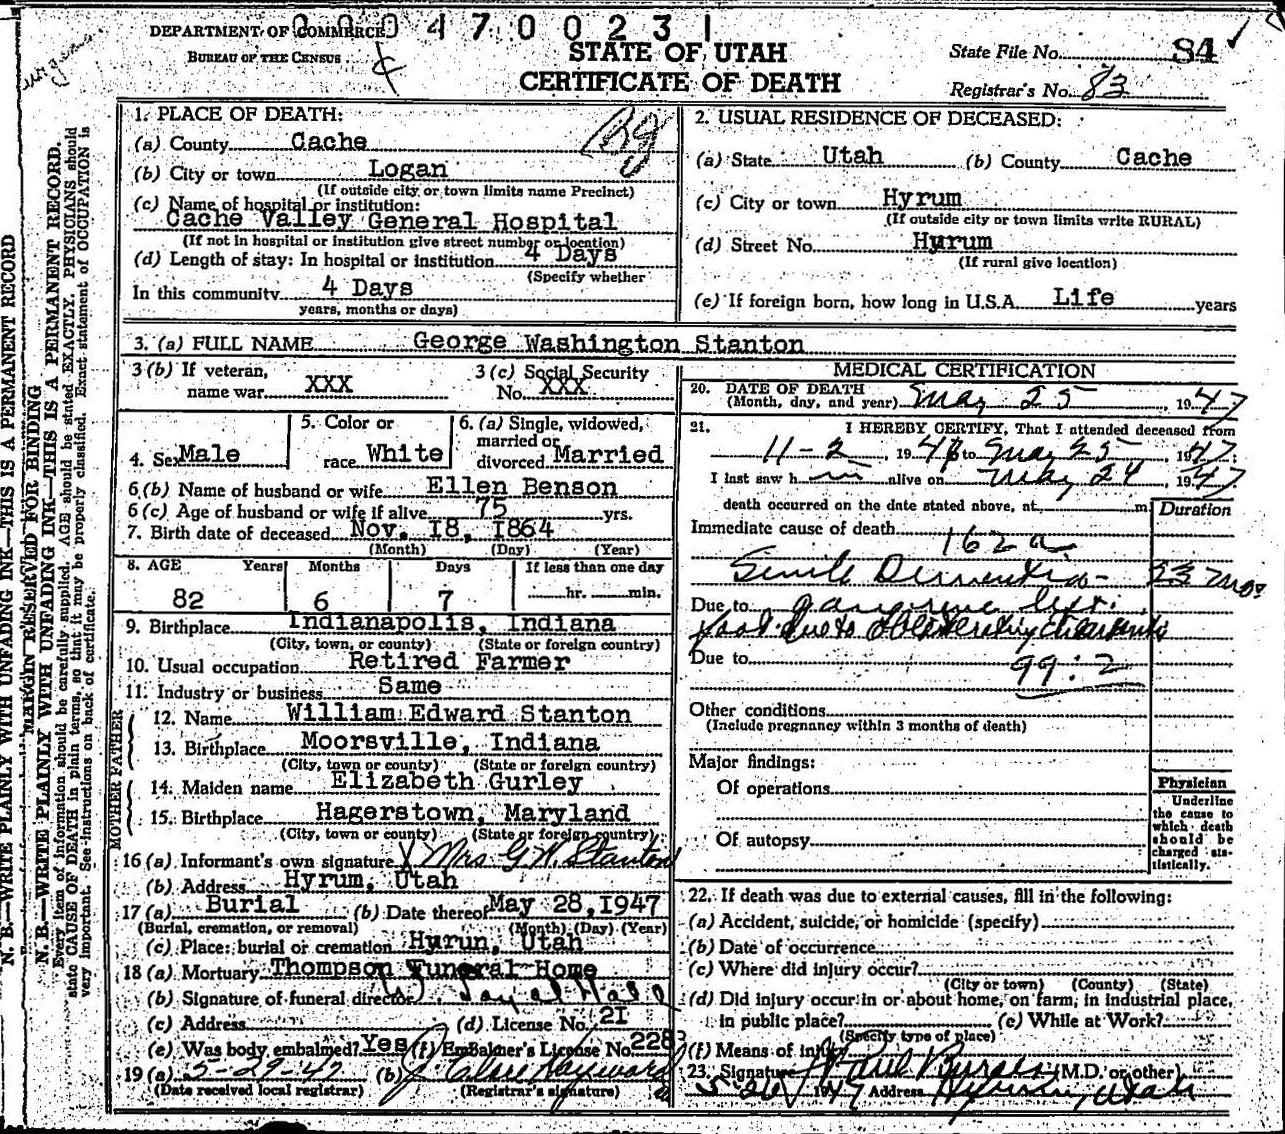 DEPARTMENT OF COMMERCE
BUREAU OF THE CENSUS
004700231
STATE OF UTAH
CERTIFICATE OF DEATH
State File No. 84
Registrar's No. 83
N. B.—WRITE PLAINLY WITH UNFADING INK—THIS IS A PERMANENT RECORD
MARGIN RESERVED FOR BINDING
N. B.—WRITE PLAINLY WITH UNFADING INK—THIS IS A PERMANENT RECORD.
Every item of information should be carefully supplied. AGE should be stated EXACTLY. PHYSICIANS should
state CAUSE OF DEATH in plain terms, so that it may be properly classified. Exact statement of OCCUPATION is
very important. See instructions on back of certificate.
1. PLACE OF DEATH:
(a) County Cache
(b) City or town Logan
(If outside city or town limits name Precinct)
(c) Name of hospital or institution:
Cache Valley General Hospital
(If not in hospital or institution give street number or location)
(d) Length of stay: In hospital or institution 4 Days
(Specify whether
In this community 4 Days
years, months or days)
2. USUAL RESIDENCE OF DECEASED:
(a) State Utah (b) County Cache
(c) City or town Hyrum
(If outside city or town limits write RURAL)
(d) Street No. Hyrum
(If rural give location)
(e) If foreign born, how long in U.S.A. Life years
3. (a) FULL NAME George Washington Stanton
3 (b) If veteran, name war XXX
3 (c) Social Security No. XXX
4. Sex Male
5. Color or race White
6. (a) Single, widowed, married or divorced Married
6 (b) Name of husband or wife Ellen Benson
6 (c) Age of husband or wife if alive 75 yrs.
7. Birth date of deceased Nov. 18, 1864
(Month) (Day) (Year)
8. AGE Years Months Days If less than one day
82 6 7 hr. min.
9. Birthplace Indianapolis, Indiana
(City, town, or county) (State or foreign country)
10. Usual occupation Retired Farmer
11. Industry or business Same
FATHER
12. Name William Edward Stanton
13. Birthplace Moorsville, Indiana
(City, town or county) (State or foreign country)
MOTHER
14. Maiden name Elizabeth Gurley
15. Birthplace Hagerstown, Maryland
(City, town or county) (State or foreign country)
16 (a) Informant's own signature X Mrs G. W. Stanton
(b) Address Hyrum, Utah
17 (a) Burial (b) Date thereof May 28, 1947
(Burial, cremation, or removal) (Month) (Day) (Year)
(c) Place: burial or cremation Hyrun, Utah
18 (a) Mortuary Thompson Funeral Home
(b) Signature of funeral director
(c) Address (d) License No. 21
(e) Was body embalmed? Yes (f) Embalmer's License No. 228
19 (a) 5-29-47 (b)
(Date received local registrar) (Registrar's signature)
MEDICAL CERTIFICATION
20. DATE OF DEATH
(Month, day, and year) May 25, 1947
21. I HEREBY CERTIFY, That I attended deceased from
11-2, 194 to May 25, 1947.
I last saw h im alive on May 24, 1947
death occurred on the date stated above, at m.
Duration
Immediate cause of death 162 a.
Senile Dementia
Due to gangrene left
foot due to obliterating
Due to 99:2
Other conditions
(Include pregnancy within 3 months of death)
Major findings:
Of operations
Of autopsy
Physician
Underline
the cause to
which death
should be
charged sta-
tistically.
22. If death was due to external causes, fill in the following:
(a) Accident, suicide, or homicide (specify)
(b) Date of occurrence
(c) Where did injury occur?
(City or town) (County) (State)
(d) Did injury occur in or about home, on farm, in industrial place,
in public place? (e) While at Work?
(Specify type of place)
(f) Means of injury
23. Signature (M.D. or other)
5 26 1947 Address Hyrum, Utah